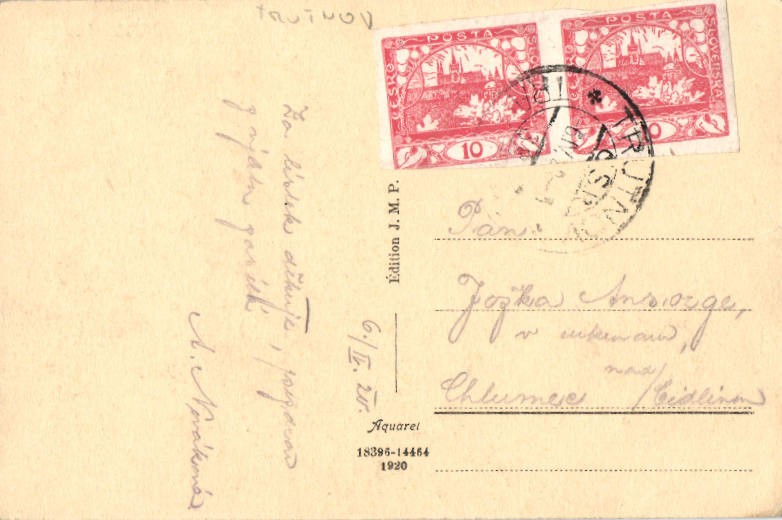 TRUTNOV
POSTA
ČESKO
SLOVENSKÁ
10
POSTA
ČESKO
SLOVENSKÁ
10
TRUTNOV
Za lístek děkuje, pozdrav
A. Nováková
6./II. 20.
Édition J. M. P.
Aquarel
18396-14464
1920
Pan
Jožka Ansorge,
v
nad/Cidlinou
Chlumec